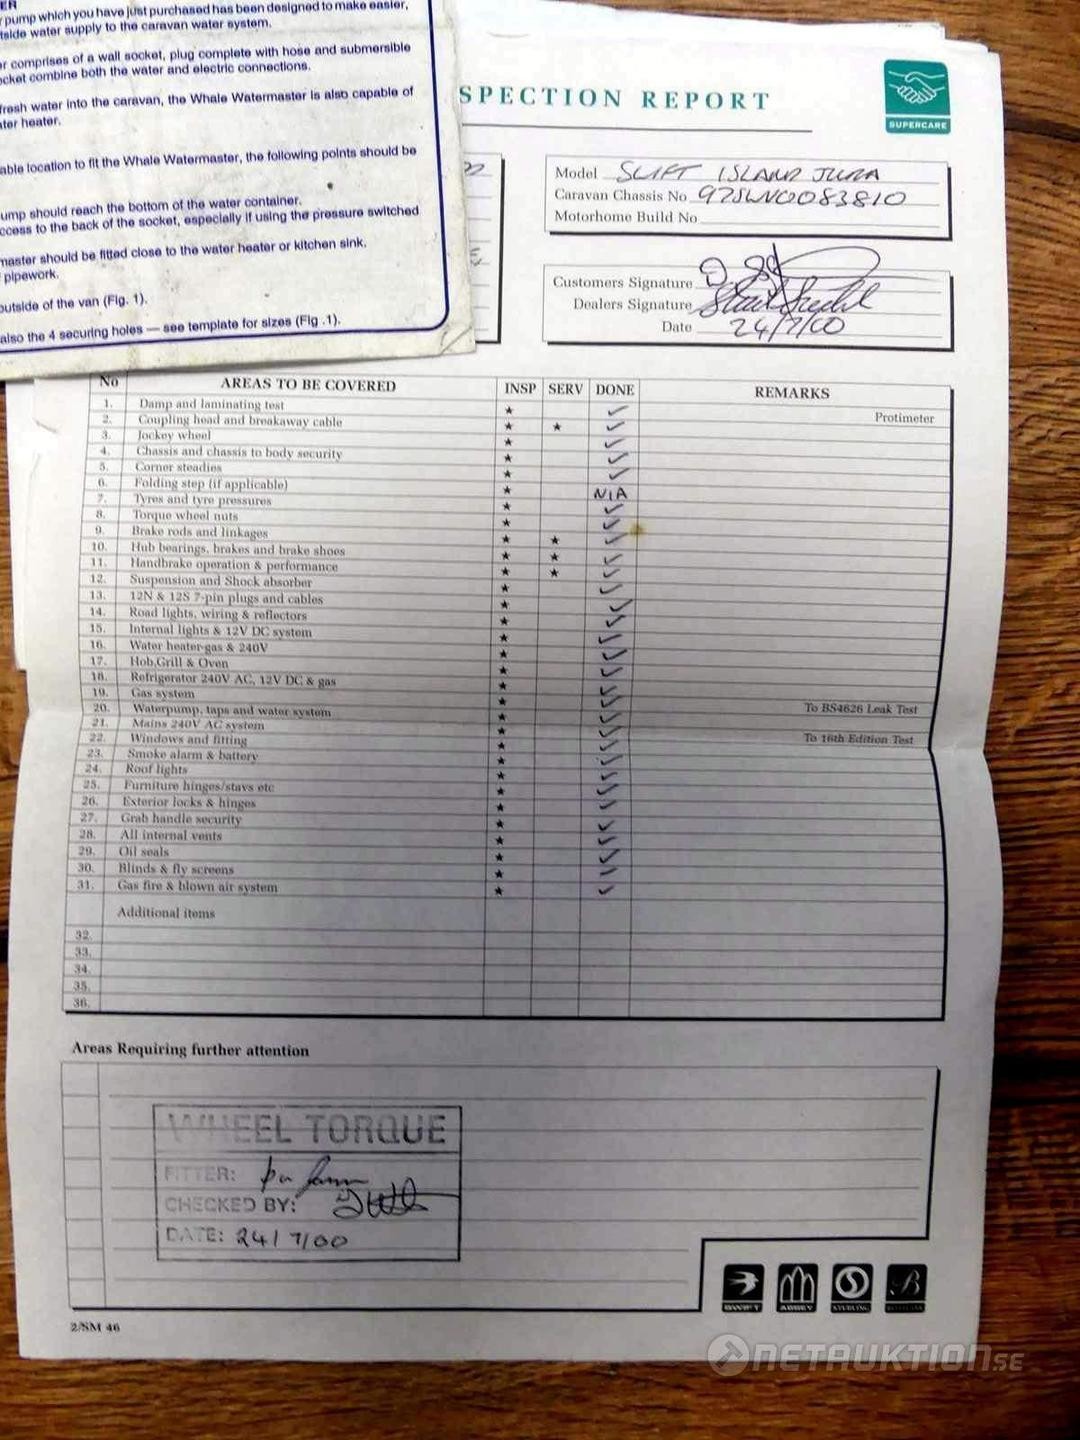 ER
pump which you have just purchased has been designed to make easier,
tside water supply to the caravan water system.
er comprises of a wall socket, plug complete with hose and submersible
ocket combine both the water and electric connections.
fresh water into the caravan, the Whale Watermaster is also capable of
ater heater.
able location to fit the Whale Watermaster, the following points should be
ump should reach the bottom of the water container.
ccess to the back of the socket, especially if using the pressure switched
master should be fitted close to the water heater or kitchen sink.
pipework.
outside of the van (Fig. 1).
also the 4 securing holes — see template for sizes (Fig .1).
SPECTION REPORT
SUPERCARE
Model SWIFT ISLAND JURA
Caravan Chassis No 97SWN0083810
Motorhome Build No
Customers Signature
Dealers Signature
Date 24/7/00
No AREAS TO BE COVERED INSP SERV DONE REMARKS
1. Damp and laminating test ★ ✓ Protimeter
2. Coupling head and breakaway cable ★ ★ ✓
3. Jockey wheel ★ ✓
4. Chassis and chassis to body security ★ ✓
5. Corner steadies ★ ✓
6. Folding step (if applicable) ★ N/A
7. Tyres and tyre pressures ★ ✓
8. Torque wheel nuts ★ ✓
9. Brake rods and linkages ★ ★ ✓
10. Hub bearings, brakes and brake shoes ★ ★ ✓
11. Handbrake operation & performance ★ ★ ✓
12. Suspension and Shock absorber ★ ✓
13. 12N & 12S 7-pin plugs and cables ★ ✓
14. Road lights, wiring & reflectors ★ ✓
15. Internal lights & 12V DC system ★ ✓
16. Water heater-gas & 240V ★ ✓
17. Hob,Grill & Oven ★ ✓
18. Refrigerator 240V AC, 12V DC & gas ★ ✓
19. Gas system ★ ✓ To BS4626 Leak Test
20. Waterpump, taps and water system ★ ✓
21. Mains 240V AC system ★ ✓ To 16th Edition Test
22. Windows and fitting ★ ✓
23. Smoke alarm & battery ★ ✓
24. Roof lights ★ ✓
25. Furniture hinges/stays etc ★ ✓
26. Exterior locks & hinges ★ ✓
27. Grab handle security ★ ✓
28. All internal vents ★ ✓
29. Oil seals ★ ✓
30. Blinds & fly screens ★ ✓
31. Gas fire & blown air system ★ ✓
Additional items
32.
33.
34.
35.
36.
Areas Requiring further attention
WHEEL TORQUE
FITTER:
CHECKED BY:
DATE: 24/7/00
SWIFT ABBEY STERLING
2/SM 46
NETAUKTION.SE